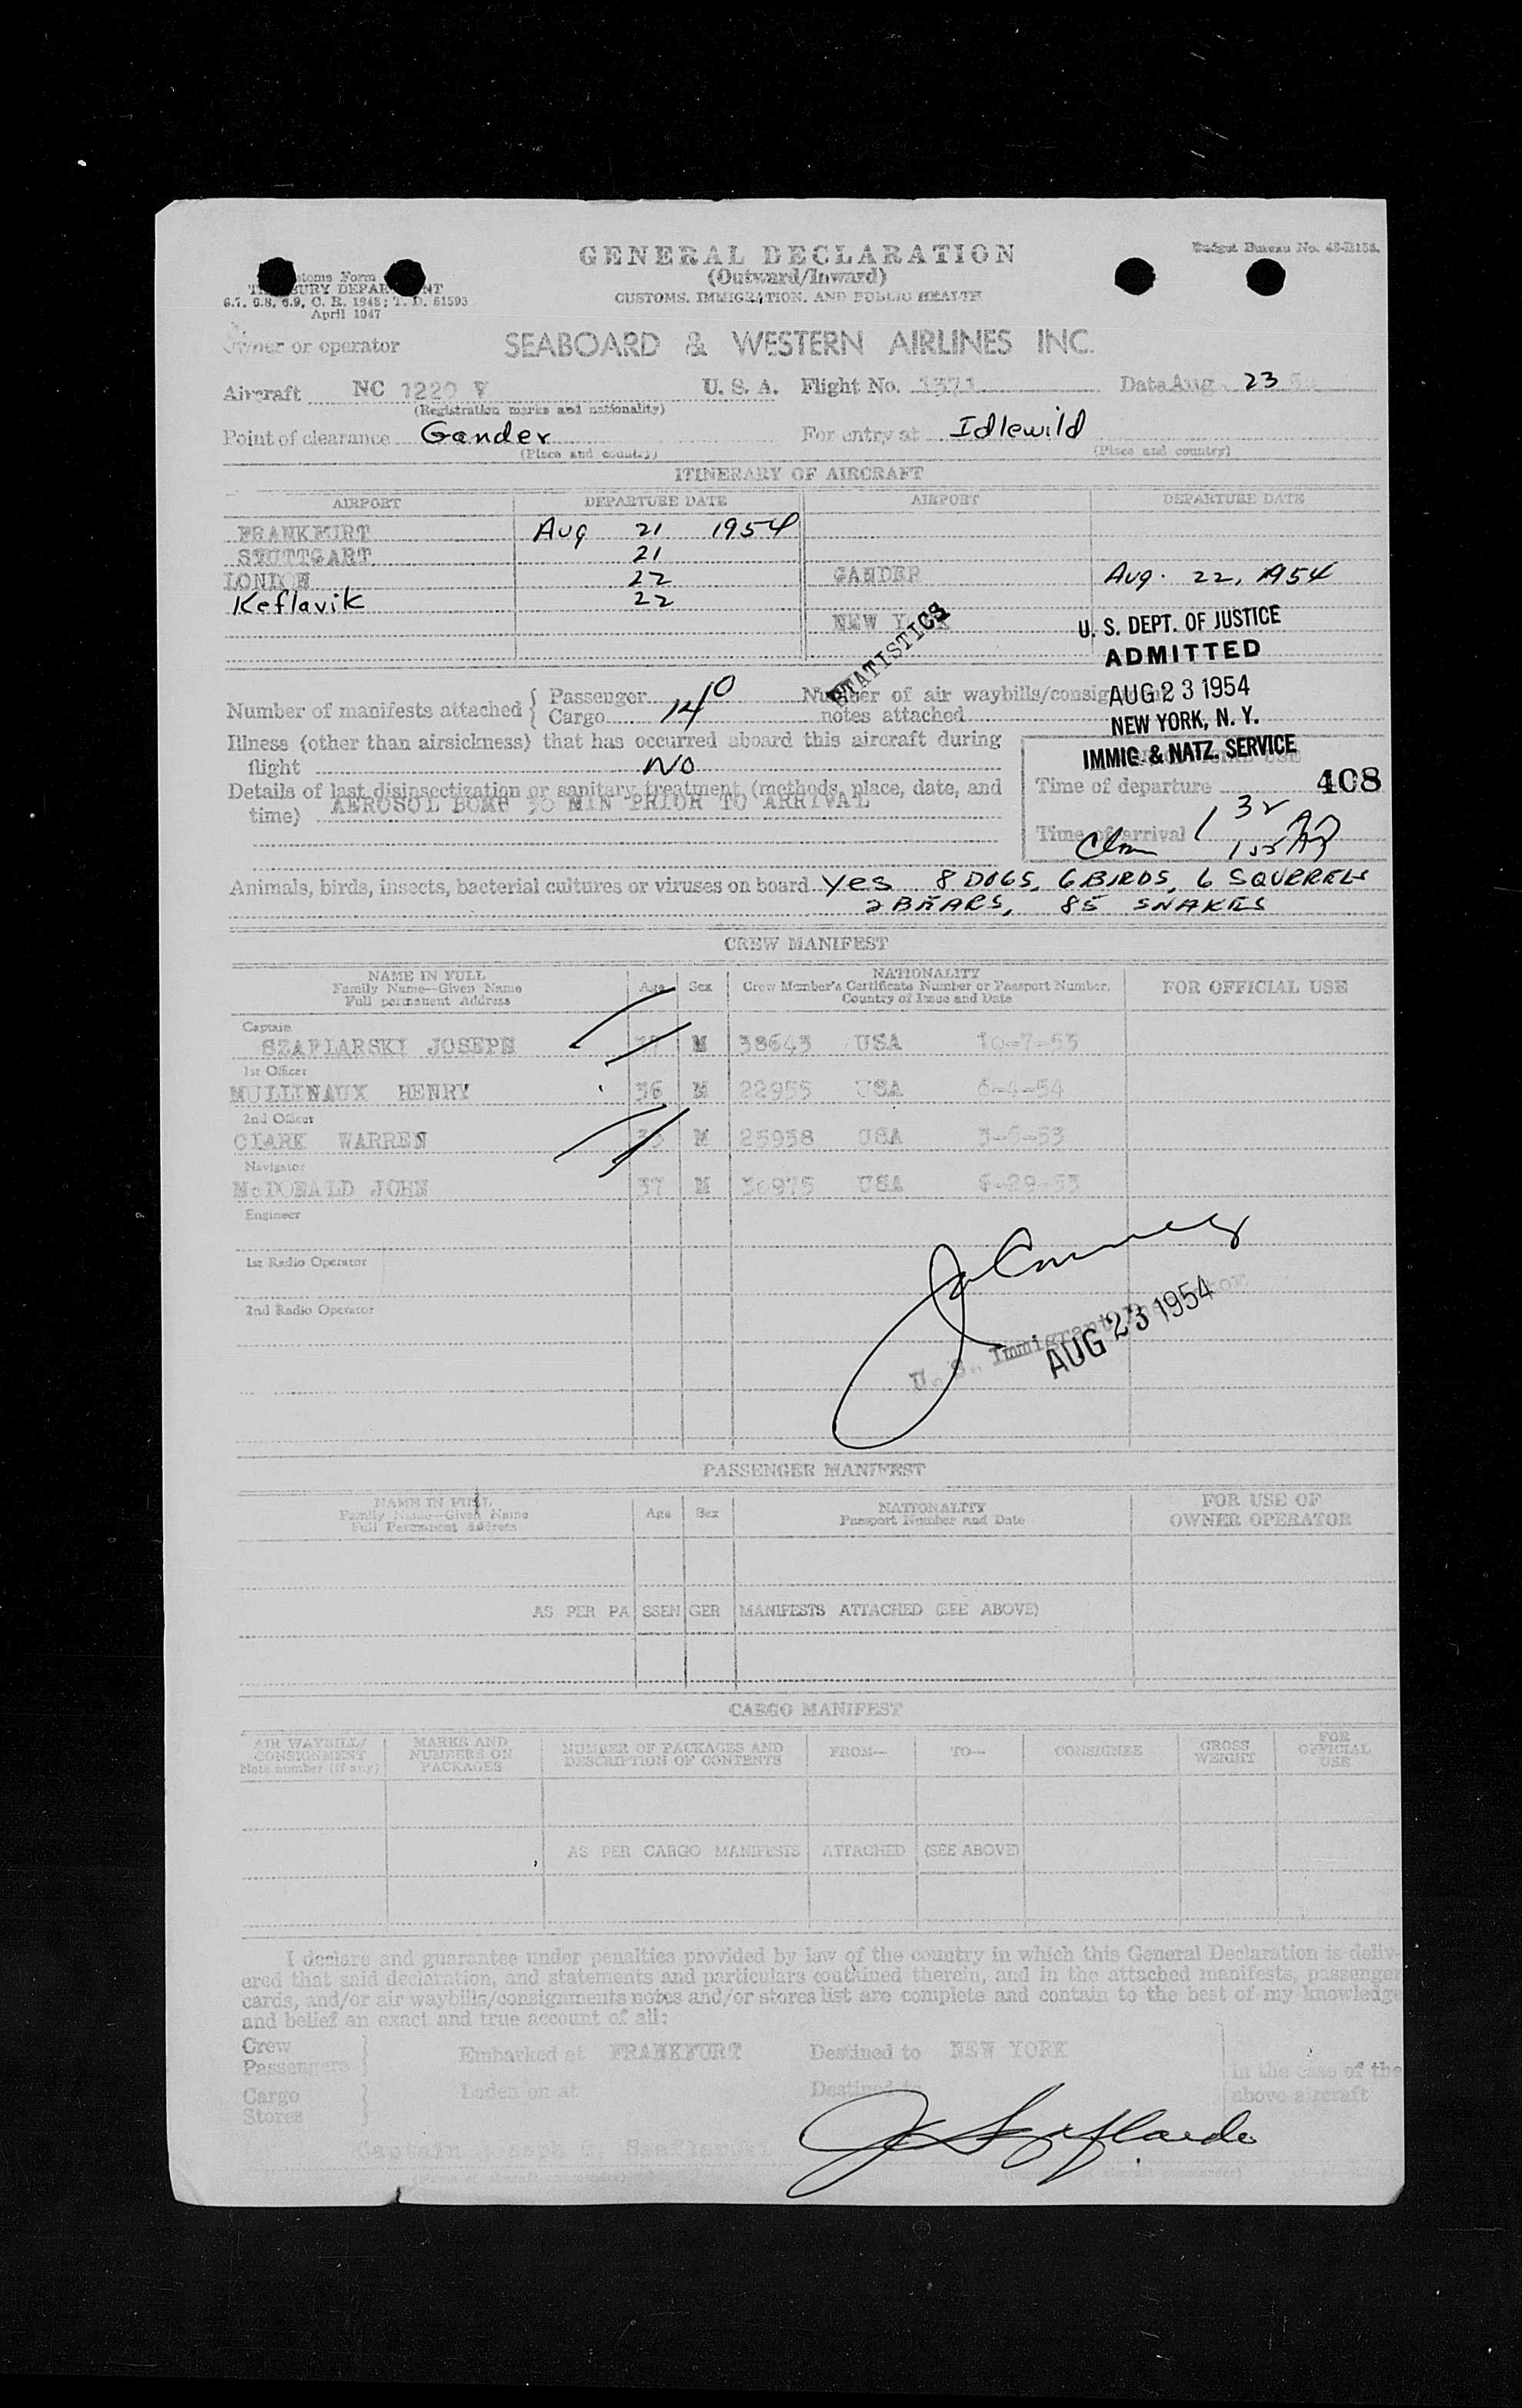 GENERAL DECLARATION
(Outward/Inward)
CUSTOMS, IMMIGRATION, AND PUBLIC HEALTH
Budget Bureau No.
Customs Form
TREASURY DEPARTMENT
6.7, 6.8, 6.9, C. R. 1948; T. D. 51593
April 1947
Owner or operator SEABOARD & WESTERN AIRLINES INC.
Aircraft NC 1220 V U. S. A. Flight No. 1371 Date Aug 23
(Registration marks and nationality)
Point of clearance Gander For entry at Idlewild
(Place and country) (Place and country)
ITINERARY OF AIRCRAFT
AIRPORT DEPARTURE DATE AIRPORT DEPARTURE DATE
FRANKFURT Aug 21 1954
STUTTGART 21
LONDON 22 GANDER Aug. 22, 1954
Keflavik 22
NEW YORK
STATISTICS
U. S. DEPT. OF JUSTICE
ADMITTED
AUG 23 1954
NEW YORK, N. Y.
IMMIG. & NATZ. SERVICE
Number of manifests attached { Passenger 0 Number of air waybills/consignment
Cargo 14 notes attached
Illness (other than airsickness) that has occurred aboard this aircraft during
flight No
OFFICIAL USE
Details of last disinsectization or sanitary treatment (methods, place, date, and
time) AEROSOL BOMB 30 MIN PRIOR TO ARRIVAL
Time of departure 408
Time of arrival 1 32
Animals, birds, insects, bacterial cultures or viruses on board Yes 8 DOGS, 6 BIRDS, 6 SQUERRELS
2 BEARS, 85 SNAKES
CREW MANIFEST
NAME IN FULL
Family Name—Given Name
Full permanent Address
Age Sex
NATIONALITY
Crew Member's Certificate Number or Passport Number,
Country of Issue and Date
FOR OFFICIAL USE
Captain
SZAFLARSKI JOSEPH M 38643 USA 10-7-53
1st Officer
MULLINAUX HENRY 36 M 22955 USA 6-4-54
2nd Officer
CLARK WARREN M 25938 USA 3-6-53
Navigator
McDONALD JOHN 37 M 30975 USA 6-29-53
Engineer
1st Radio Operator
2nd Radio Operator
U. S. Immigrant Inspector
AUG 23 1954
PASSENGER MANIFEST
NAME IN FULL
Family Name—Given Name
Full Permanent Address
Age Sex
NATIONALITY
Passport Number and Date
FOR USE OF
OWNER OPERATOR
AS PER PASSENGER MANIFESTS ATTACHED (SEE ABOVE)
CARGO MANIFEST
AIR WAYBILL/
CONSIGNMENT
Note number (If any)
MARKS AND
NUMBERS ON
PACKAGES
NUMBER OF PACKAGES AND
DESCRIPTION OF CONTENTS
FROM— TO— CONSIGNEE
GROSS
WEIGHT
FOR
OFFICIAL
USE
AS PER CARGO MANIFESTS ATTACHED (SEE ABOVE)
I declare and guarantee under penalties provided by law of the country in which this General Declaration is deliv-
ered that said declaration, and statements and particulars contained therein, and in the attached manifests, passenger
cards, and/or air waybills/consignments notes and/or stores list are complete and contain to the best of my knowledge
and belief an exact and true account of all:
Crew
Passengers } Embarked at FRANKFURT Destined to NEW YORK
Cargo
Stores } Laden on at Destined to
in the case of the
above aircraft
Captain Joseph C. Szaflarski